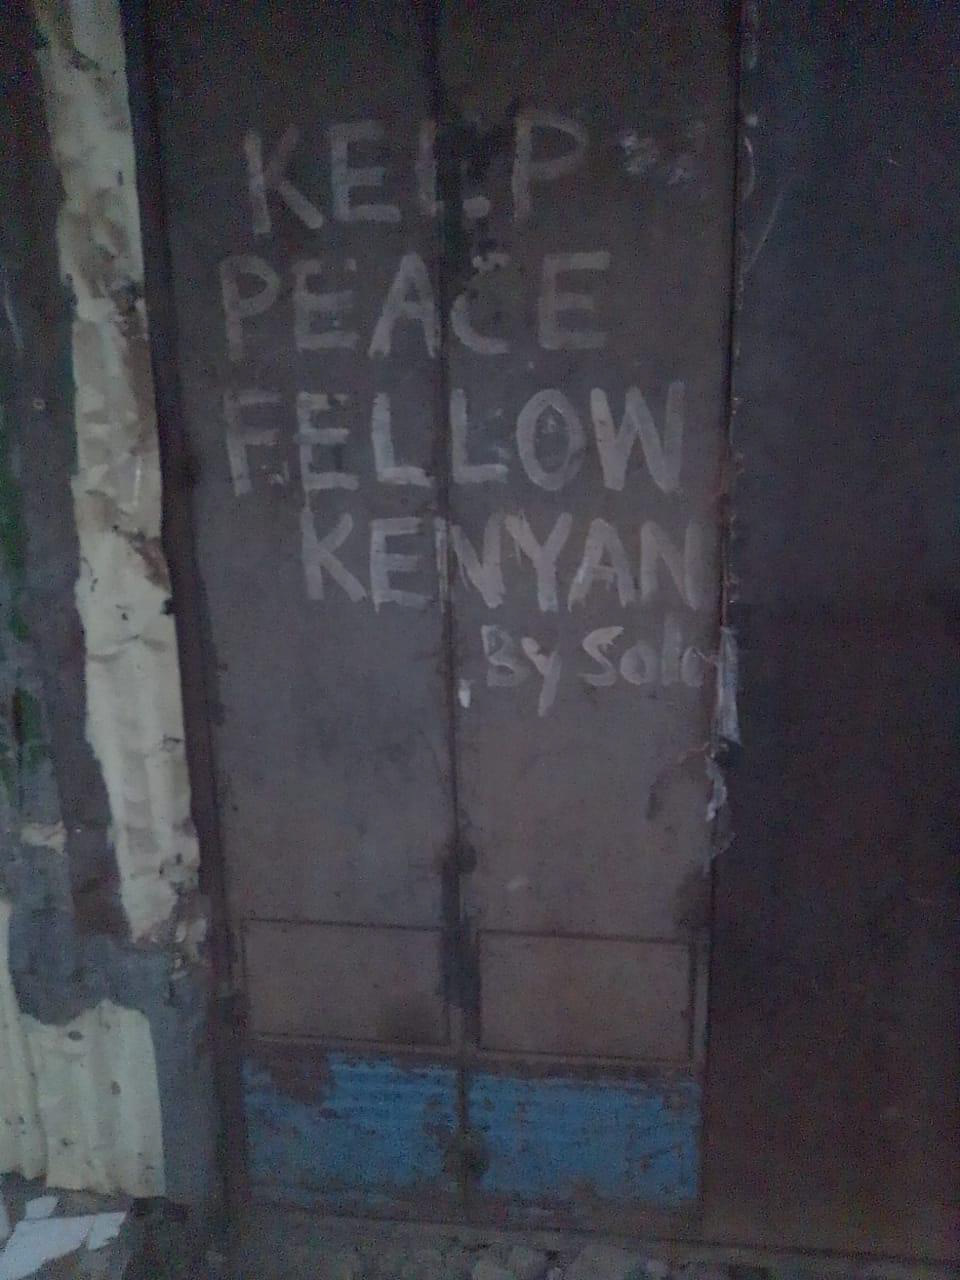 KEEP
PEACE
FELLOW
KENYAN
By Solo